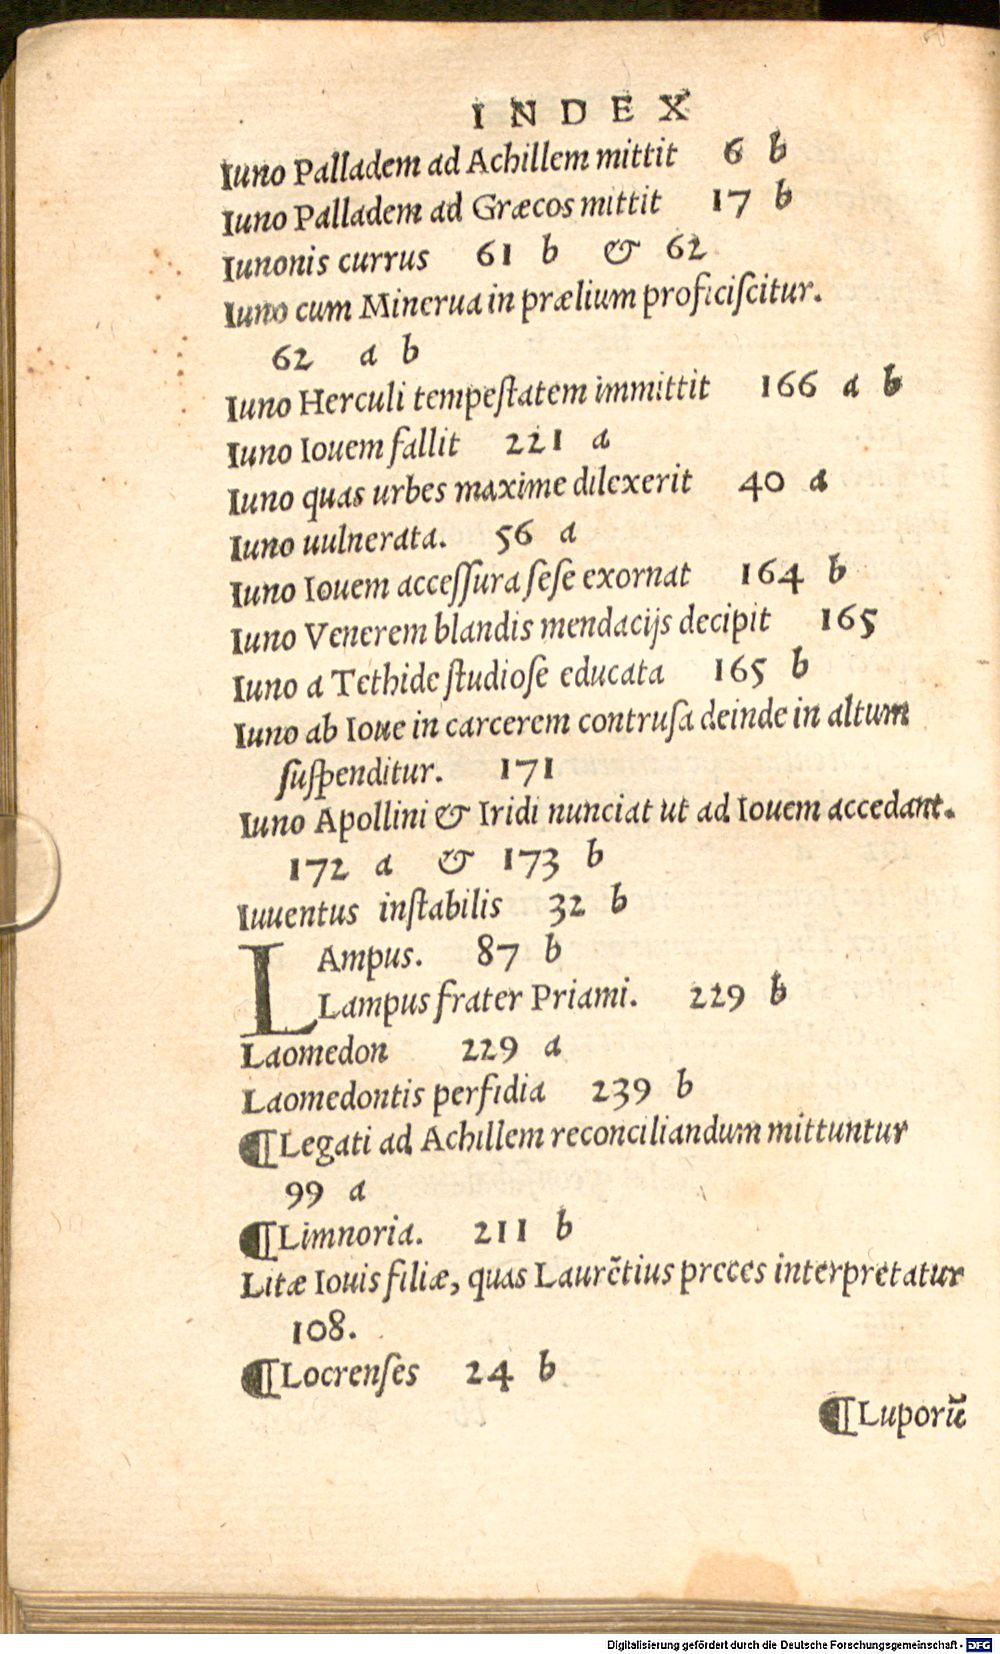 INDEX
Iuno Palladem ad Achillem mittit 6 b
Iuno Palladem ad Græcos mittit 17 b
Iunonis currus 61 b & 62
Iuno cum Minerua in prælium proficiſcitur.
62 a b
Iuno Herculi tempeſtatem immittit 166 a b
Iuno Iouem fallit 221 a
Iuno quas urbes maxime dilexerit 40 a
Iuno uulnerata. 56 a
Iuno Iouem acceſſura ſeſe exornat 164 b
Iuno Venerem blandis mendacijs decipit 165
Iuno a Tethide ſtudioſe educata 165 b
Iuno ab Ioue in carcerem contruſa deinde in altum
ſuſpenditur. 171
Iuno Apollini & Iridi nunciat ut ad Iouem accedant.
172 a & 173 b
Iuuentus inſtabilis 32 b
LAmpus. 87 b
Lampus frater Priami. 229 b
Laomedon 229 a
Laomedontis perfidia 239 b
¶Legati ad Achillem reconciliandum mittuntur
99 a
¶Limnoria. 211 b
Litæ Iouis filiæ, quas Laurẽtius preces interpretatur
108.
¶Locrenſes 24 b
¶Luporũ
Digitalisierung gefördert durch die Deutsche Forschungsgemeinschaft - DFG